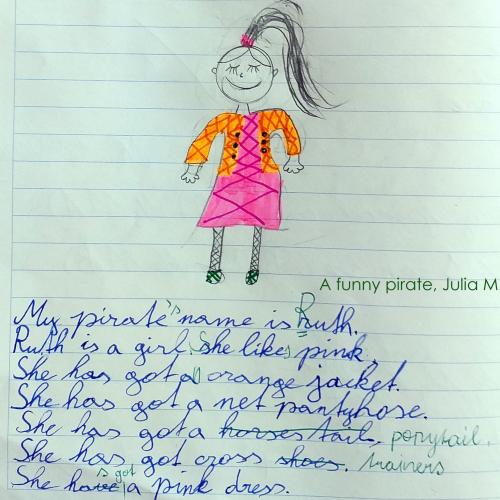 A funny pirate, Julia M
My pirate's name is Ruth.
Ruth is a girl. She likes pink.
She has got an orange jacket.
She has got a net pantyhose.
She has got a horses tail. ponytail.
She has got cross shoes. trainers
She have 's got a pink dress.